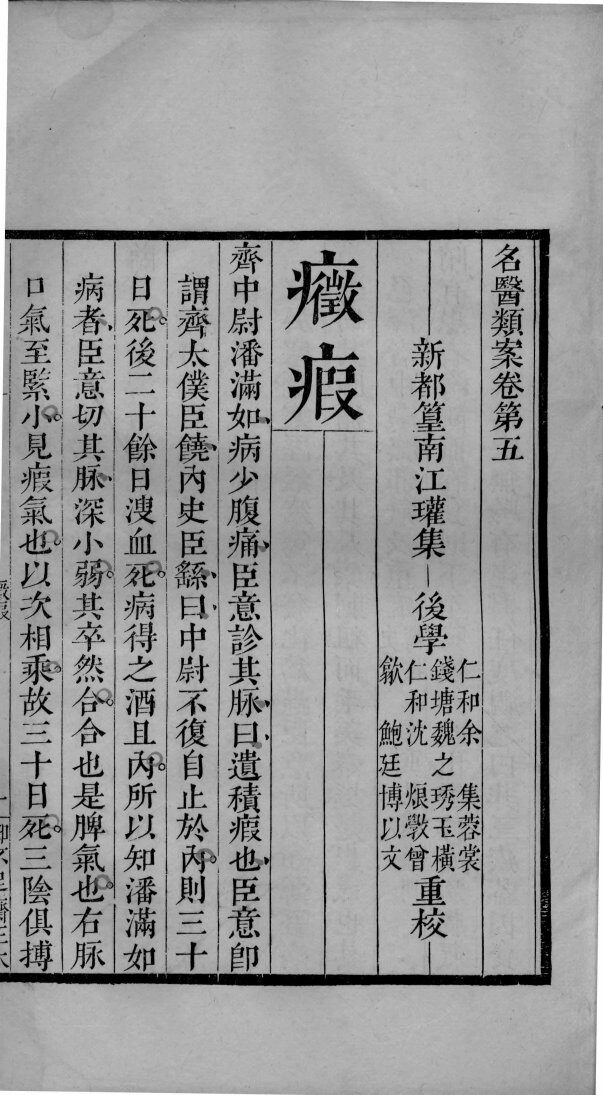 名醫類案卷第五
新都篁南江瓘集 後學
仁和余 集蓉裳
錢塘魏之琇玉橫
仁和沈 烺敤曾
歙 鮑廷博以文
重校
癥瘕
齊中尉潘滿如病少腹痛臣意診其脉曰遺積瘕也臣意卽
謂齊太僕臣饒內史臣繇曰中尉不復自止於內則三十
日死後二十餘日溲血死病得之酒且內所以知潘滿如
病者臣意切其脉深小弱其卒然合合也是脾氣也右脉
口氣至緊小見瘕氣也以次相乘故三十日死三陰俱搏